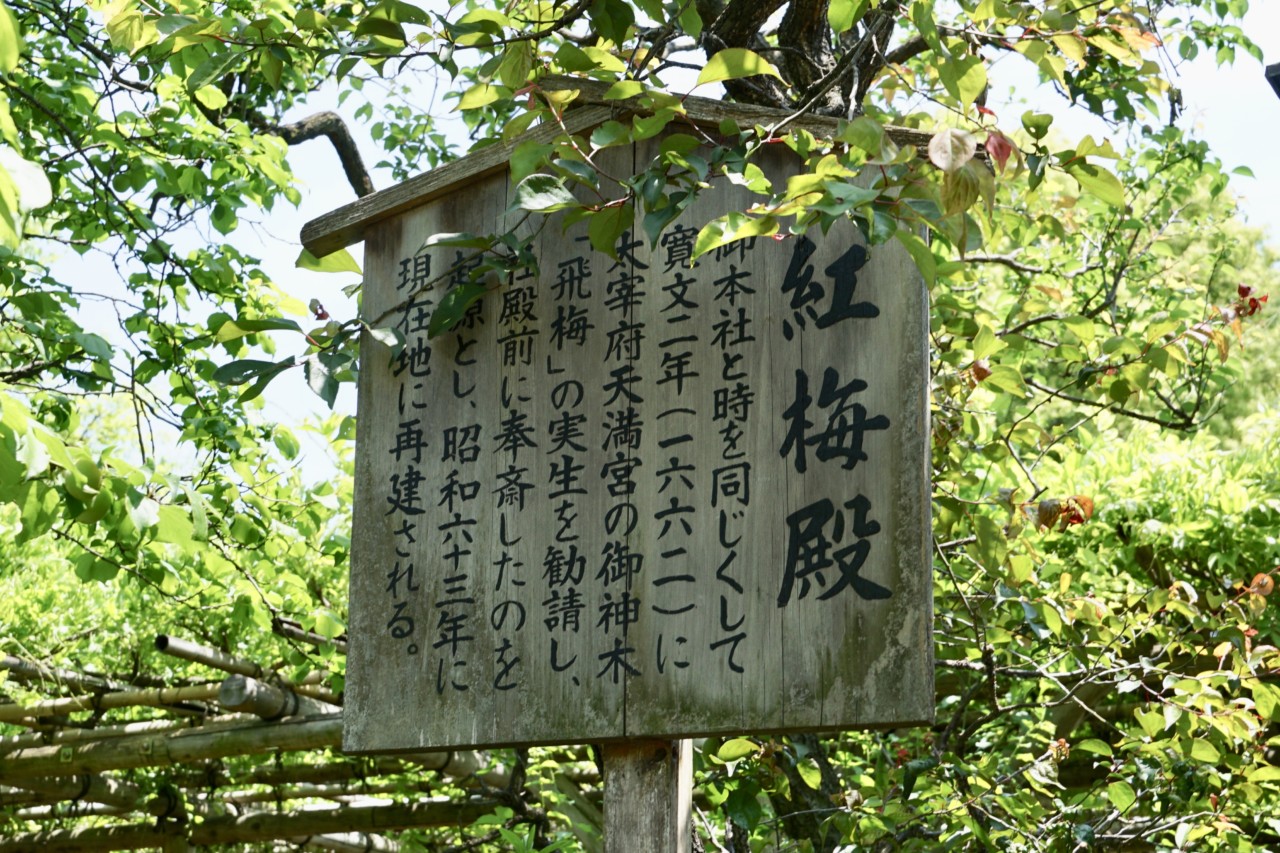 紅梅殿
御本社と時を同じくして
寛文二年(一六六二)に
太宰府天満宮の御神木
「飛梅」の実生を勧請し、
社殿前に奉斎したのを
起源とし、昭和六十三年に
現在地に再建される。